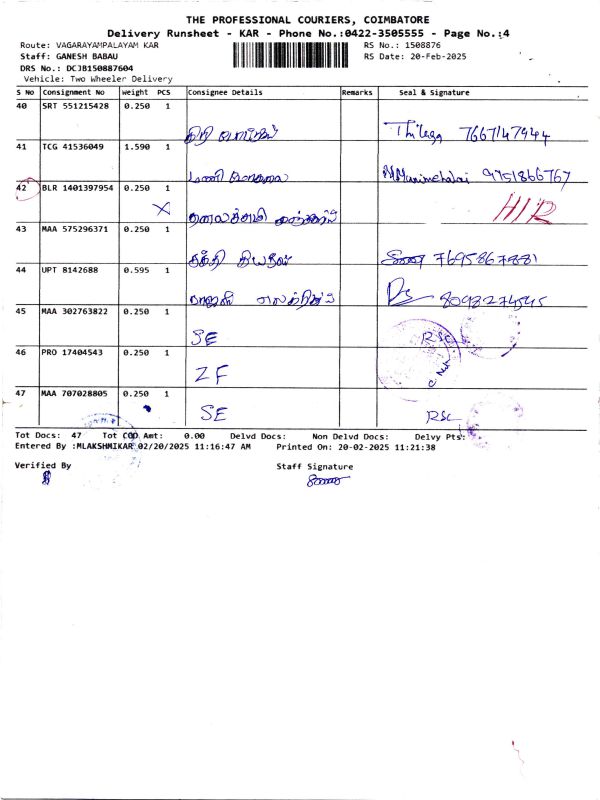 THE PROFESSIONAL COURIERS, COIMBATORE
Delivery Runsheet - KAR - Phone No.:0422-3505555 - Page No.:4
Route: VAGARAYAMPALAYAM KAR
RS No.: 1508876
Staff: GANESH BABAU
RS Date: 20-Feb-2025
DRS No.: DCJB150887604
Vehicle: Two Wheeler Delivery
S No Consignment No Weight PCS Consignee Details Remarks Seal & Signature
40 SRT 551215428 0.250 1
Thilaga 7667147944
41 TCG 41536049 1.590 1
மணி மேகலை
9751866767
42 BLR 1401397954 0.250 1
X
H/R
43 MAA 575296371 0.250 1
சக்தி
7695867881
44 UPT 8142688 0.595 1
8098274545
45 MAA 302763822 0.250 1
SE RSC
46 PRO 17404543 0.250 1
ZF
47 MAA 707028805 0.250 1
SE RSC
Tot Docs: 47 Tot COD Amt: 0.00 Delvd Docs: Non Delvd Docs: Delvy Pts:
Entered By :MLAKSHMIKAR 02/20/2025 11:16:47 AM Printed On: 20-02-2025 11:21:38
Verified By Staff Signature